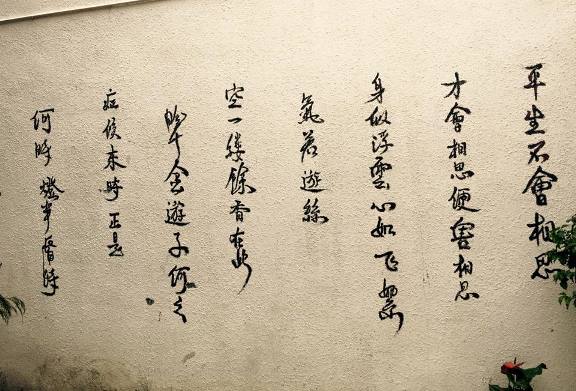 平生不會相思
才會相思便害相思
身似浮雲心如飞絮
氣若遊絲
空一縷餘香在此
盼千金遊子何之
症候来時正是
何時燈半昏時